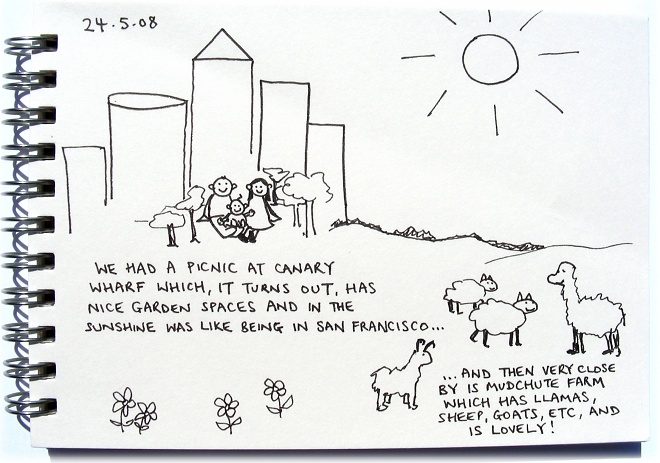 24.5.08
WE HAD A PICNIC AT CANARY
WHARF WHICH, IT TURNS OUT, HAS
NICE GARDEN SPACES AND IN THE
SUNSHINE WAS LIKE BEING IN SAN FRANCISCO...
...AND THEN VERY CLOSE
BY IS MUDCHUTE FARM
WHICH HAS LLAMAS,
SHEEP, GOATS, ETC, AND
IS LOVELY!